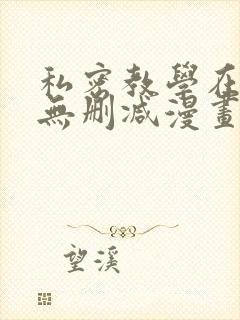 私密教學在
無刪減漫畫
望溪